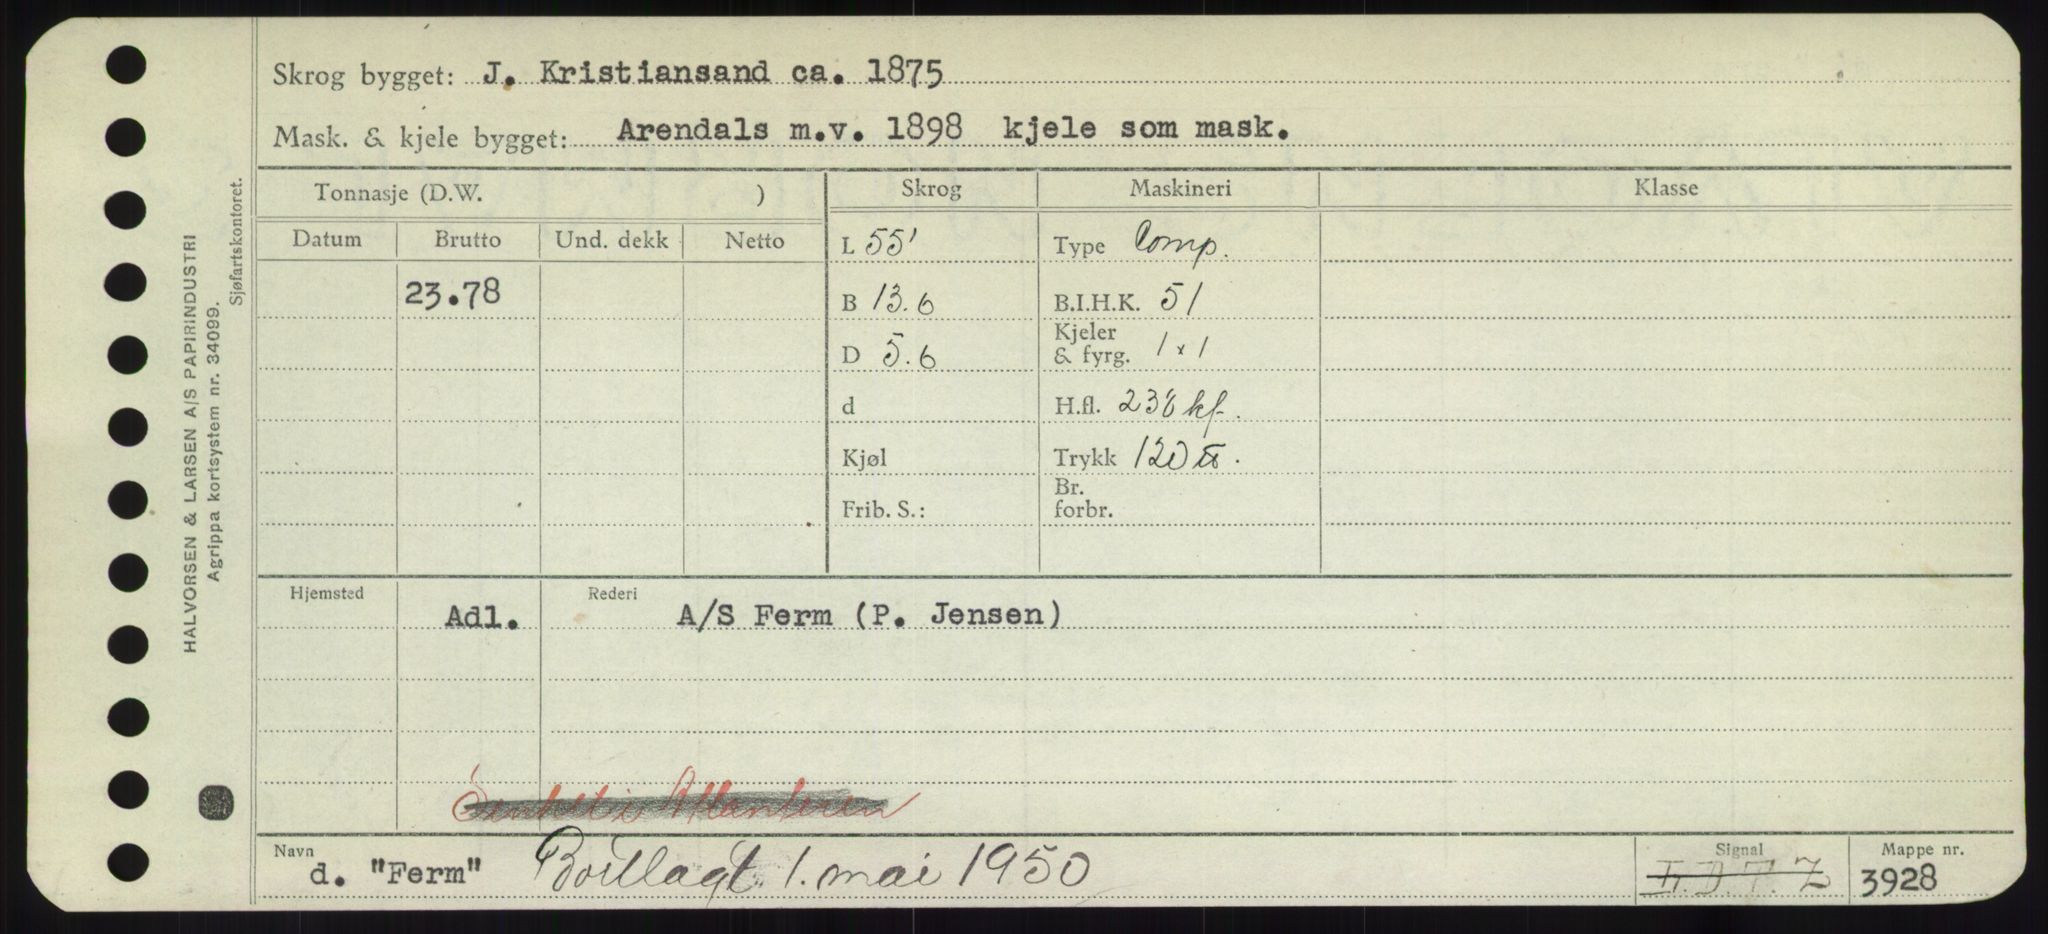 Skrog bygget: J. Kristiansand ca. 1875
Mask. & kjele bygget: Arendals m.v. 1898 kjele som mask.
Tonnasje (D.W. ) Skrog Maskineri Klasse
Datum Brutto Und. dekk Netto
L 55' Type Comp.
23.78 B 13.6 B.I.H.K. 51
D 5.6 Kjeler & fyrg. 1 x 1
d H.fl. 238 kf.
Kjøl Trykk 120 ℔.
Frib. S.: Br. forbr.
Hjemsted Rederi
Adl. A/S Ferm (P. Jensen)
Senket i Atlanteren
Navn Signal Mappe nr.
d. "Ferm" Bortlagt 1. mai 1950 3928
HALVORSEN & LARSEN A/S PAPIRINDUSTRI
Agrippa kortsystem nr. 34099.
Sjøfartskontoret.